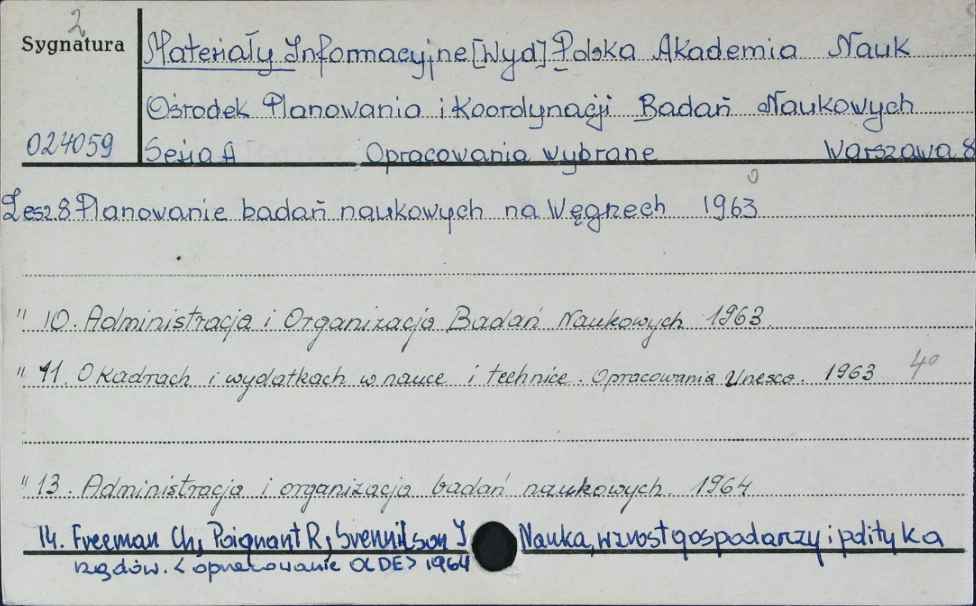 2
Sygnatura
Materiały Informacyjne [Wyd] Polska Akademia Nauk
Ośrodek Planowania i Koordynacji Badań Naukowych
024059
Seria A Opracowania wybrane Warszawa 8
0
Zesz 8. Planowanie badań naukowych na Węgrzech 1963
" 10. Administracja i Organizacja Badań Naukowych 1963.
" 11. O Kadrach i wydatkach w nauce i technice. Opracowania Unesco. 1963 4°
" 13. Administracja i organizacja badań naukowych. 1964
14. Freeman Ch, Poignant R, Svennilson I Nauka, wzrost gospodarzy i polityka
rządów. < opracowanie OCDE> 1964